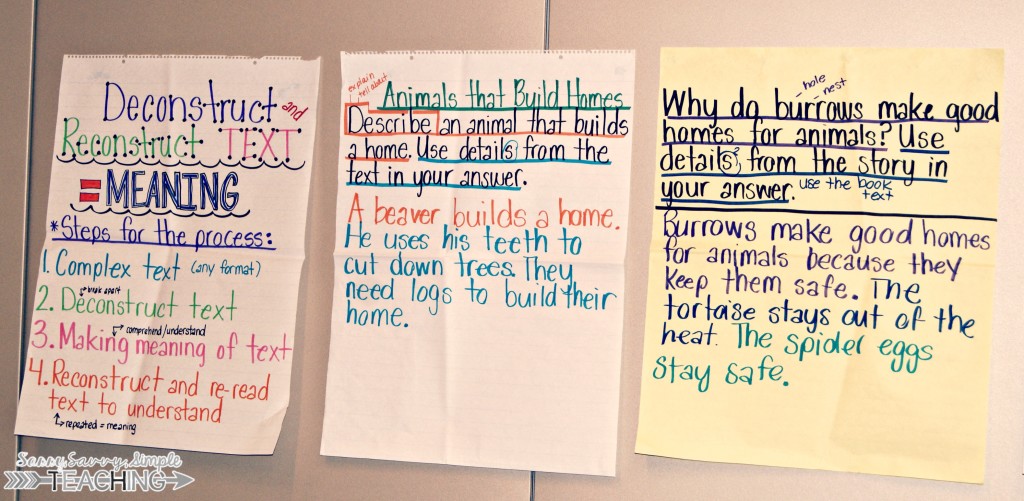 Deconstruct and
Reconstruct TEXT
= MEANING
*Steps for the process:
1. Complex text (any format)
break apart
2. Deconstruct text
comprehend/understand
3. Making meaning of text
4. Reconstruct and re-read
text to understand
repeated = meaning
explain
tell about
Animals that Build Homes
Describe an animal that builds
a home. Use details from the
text in your answer.
A beaver builds a home.
He uses his teeth to
cut down trees. They
need logs to build their
home.
hole
nest
Why do burrows make good
homes for animals? Use
details from the story in
your answer. use the book
text
Burrows make good homes
for animals because they
keep them safe. The
tortoise stays out of the
heat. The spider eggs
stay safe.
Savvy, Simple
TEACHING